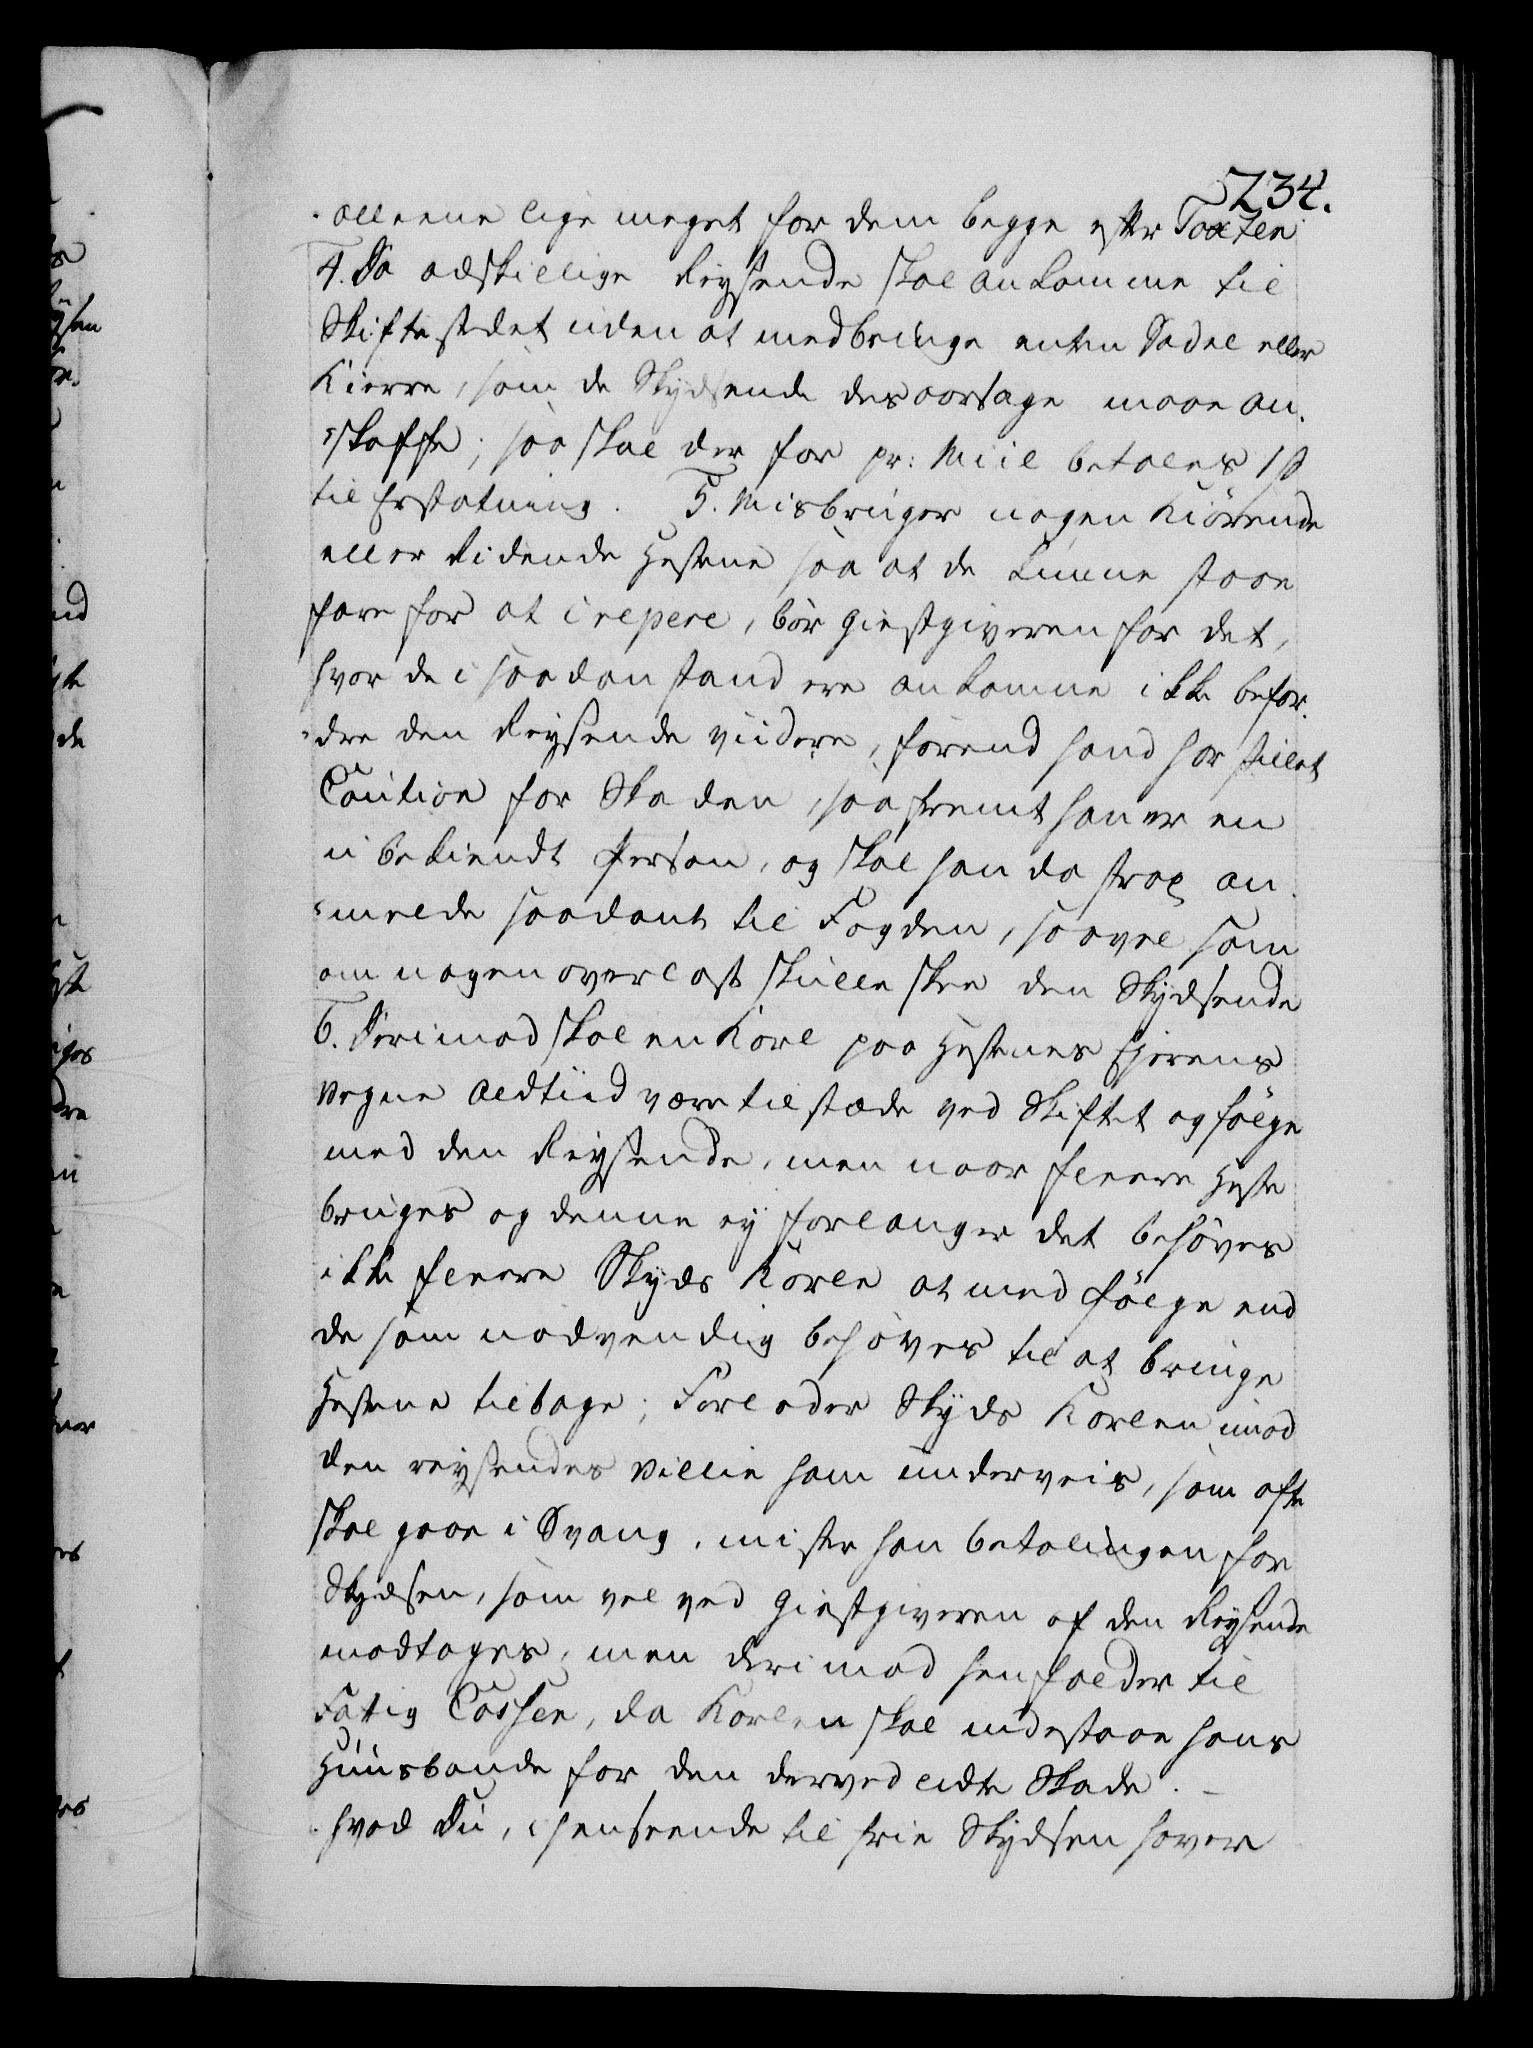 5234.
alleene lige meget for dem begge efter Taxten
4. Da adskillige Reysende skal ankomme til
Skiftestedet uden at medbringe enten Sadel eller
Kierre, som de Skydsende desaarsage maae an-
skaffe; saa skal der for pr: Miil betales 1 ß
til Erstatning. 5. Misbruger nogen Kiörende
eller Ridende Hestene saa at de kunne staae
fare for at crepere, bör Giestgiveren for det,
hvor de i saadan stand ere ankomne ikke befor-
dre den Reysende viidere, förend hand har stillet
Caution for Skaden, saafremt han er en
ubekiendt Person, og skal han da strax an-
melde saadant til Fogden, saavel som
om nogen overlast skulle skee den Skydsende
6. Derimod skal en Karl paa Hestenes Ejerens
Vegne altiid være tilstæde ved Skiftet og fölge
med den Reysende, men naar fleere Heste
bruges og denne ey forlanger det behöves
ikke fleere Skyds Karle at med fölge end
de som nödvendig behöves til at bringe
Hestene tilbage; Forlader Skyds Karlen imod
den reysendes Villie ham underveis, som ofte
skal gaae i Svang, mister han betalingen for
Skydsen, som vel ved Giestgiveren af den Reysende
modtages, men derimod henfalder til
Fattig Cassen, da Karlen skal indestaae hans
Huusbonde for den derved lidte Skade. -
hvad Du, i henseende til frie Skydsen haver